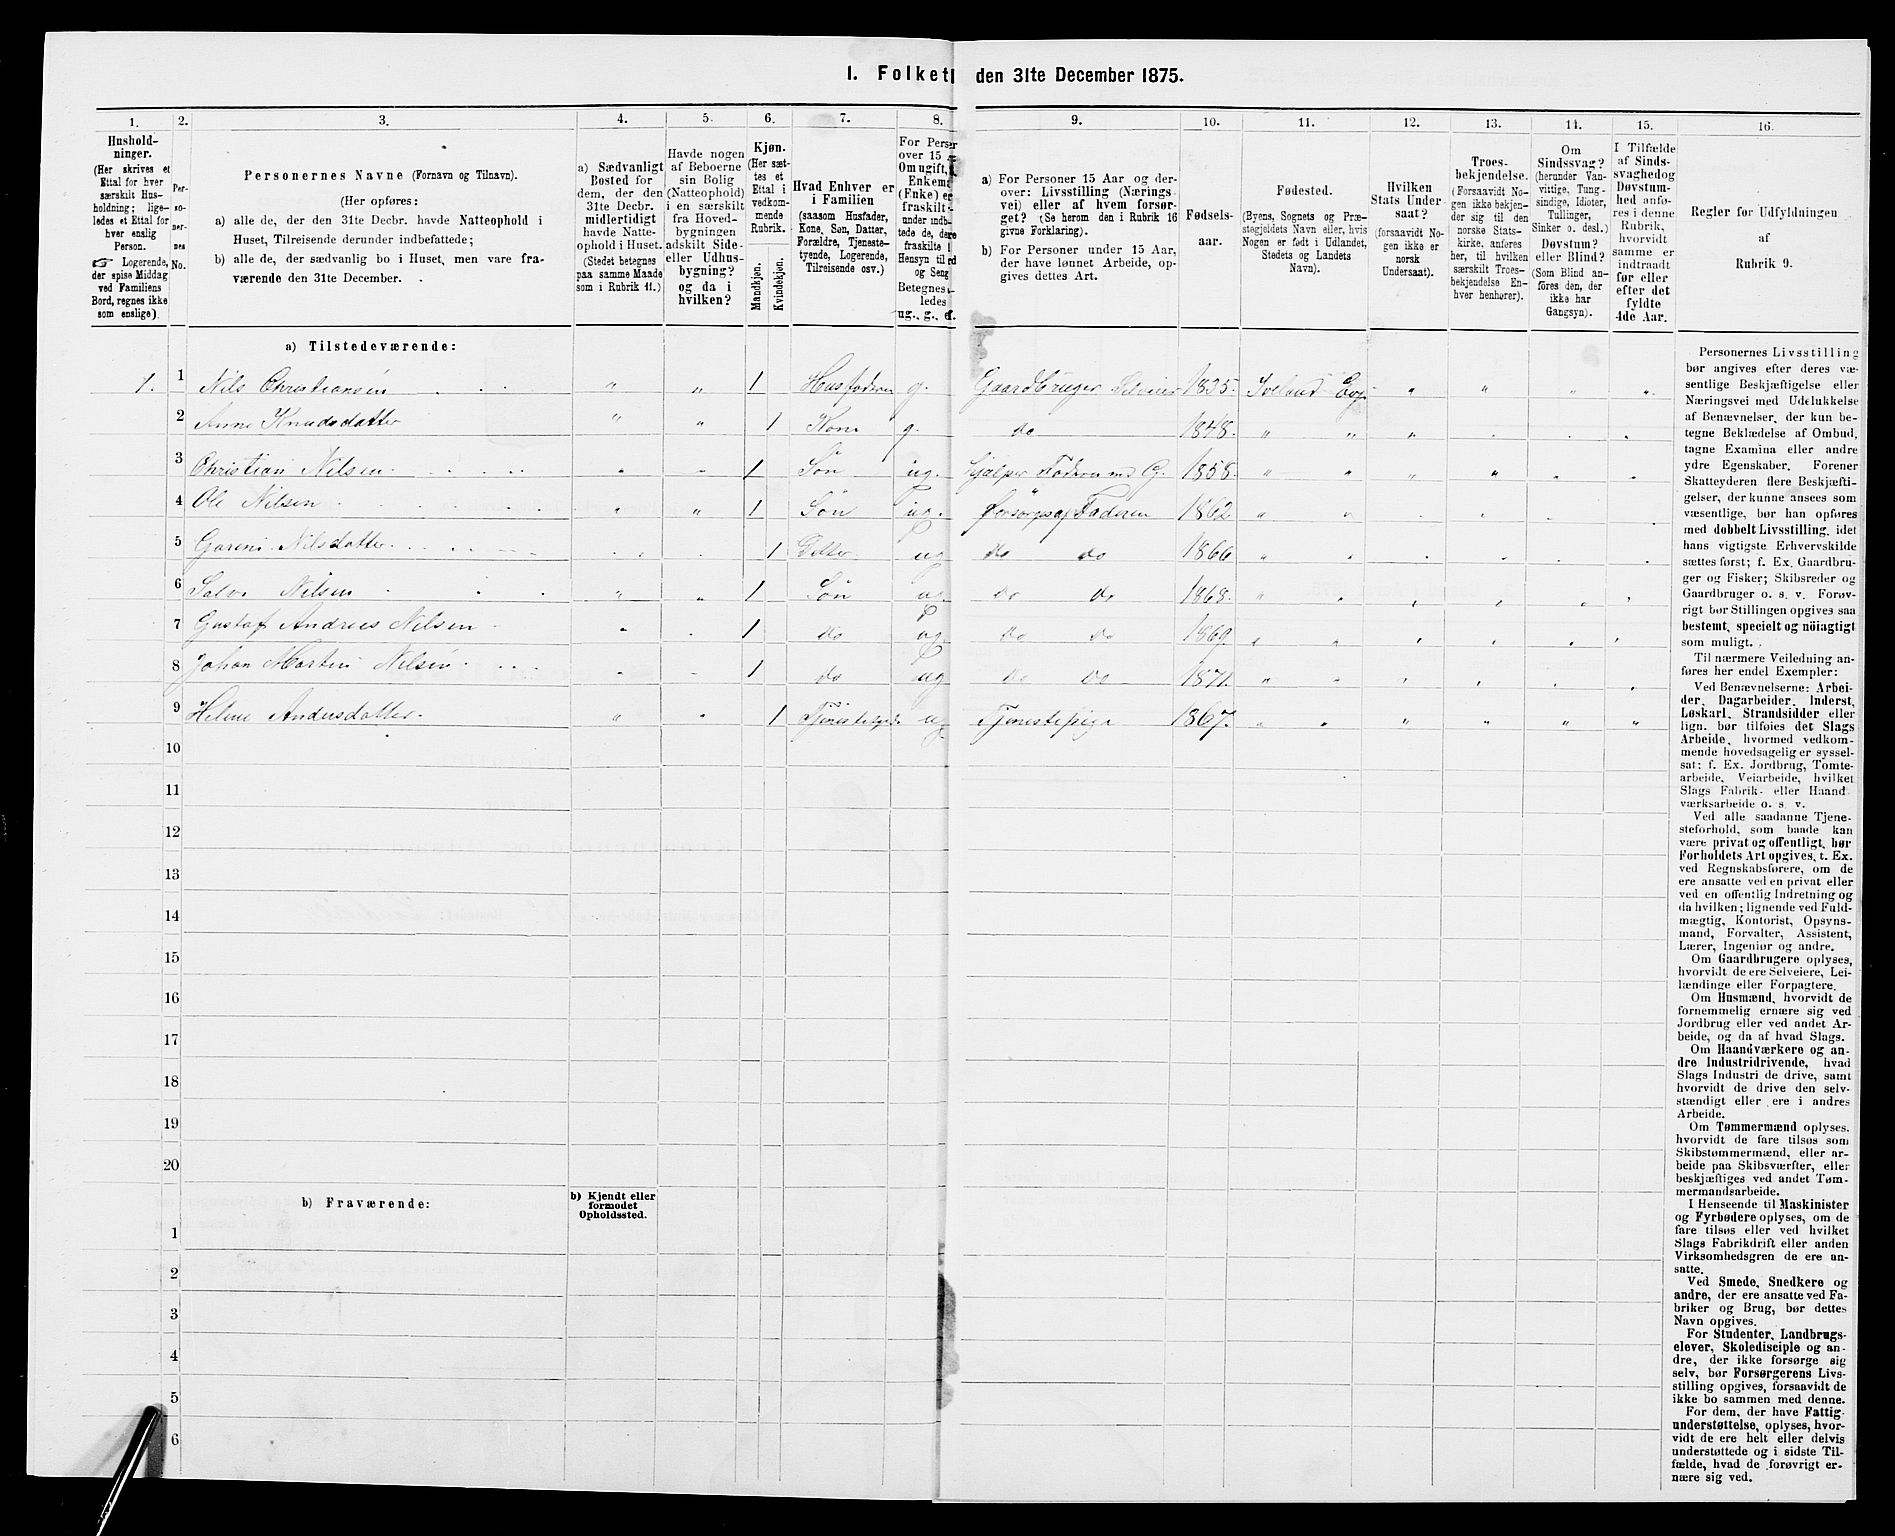 I. Folket den 31te December 1875.
1. 2. 3. 4. 5. 6. 7. 8. 9. 10. 11. 12. 13. 14. 15. 16.
Hushold-
ninger.
(Her skrives et
Ettal for hver
særskilt Hus-
holdning; lige-
ledes et Ettal for
hver enslig
Person.
☞ Logerende,
der spise Middag
ved Familiens
Bord, regnes ikke
som enslige).
Per-
so-
ner-
nes
No.
Personernes Navne (Fornavn og Tilnavn).
(Her opføres:
a) alle de, der den 31te Decbr. havde Natteophold i
Huset, Tilreisende derunder indbefattede;
b) alle de, der sædvanlig bo i Huset, men vare fra-
værende den 31te December.
a) Sædvanligt
Bosted for
dem, der den
31te Decbr.
midlertidigt
havde Natte-
ophold i Huset.
(Stedet betegnes
paa samme Maade
som i Rubrik 11.)
Havde nogen
af Beboerne
sin Bolig
(Natteophold)
i en særskilt
fra Hoved-
bygningen
adskilt Side-
eller Udhus-
bygning?
og da i
hvilken?
Kjøn.
(Her sæt-
tes et
Ettal i
vedkom-
mende
Rubrik.
Mandkjøn.
Kvindekjøn.
Hvad Enhver er
i Familien
(saasom Husfader,
Kone, Søn, Datter,
Forældre, Tjeneste-
tyende, Logerende,
Tilreisende osv.)
For Perser
over 15
Om ugift,
Enkema
(Enke) er
fraskilt
under indbe-
tede de, dere
fraskilte
Hensyn til
og Seng
Betegnes
ledes
ug., g., ef.
a) For Personer 15 Aar og der-
over: Livsstilling (Nærings-
vei) eller af hvem forsør-
get? (Se herom den i Rubrik 16
givne Forklaring).
b) For Personer under 15 Aar,
der have lønnet Arbeide, op-
gives dettes Art.
Fødsels-
aar.
Fødested.
(Byens, Sognets og Præ-
stegjeldets Navn eller, hvis
Nogen er født i Udlandet,
Stedets og Landets
Navn).
Hvilken
Stats Under-
saat?
(forsaavidt No-
gen ikke er
norsk
Undersaat).
Troes-
bekjendelse.
(Forsaavidt No-
gen ikke bekjen-
der sig til den
norske Stats-
kirke, anføres
her, til hvilken
særskilt Troes-
bekjendelse En-
hver henhører).
Om
Sindssvag?
(herunder Van-
vittige, Tung-
sindige, Idioter,
Tullinger,
Sinker o. desl.)
Døvstum?
eller Blind?
(Som Blind an-
føres den, der
ikke har
Gangsyn).
I Tilfælde
af Sinds-
svaghed og
Døvstum-
hed anfø-
res i denne
Rubrik,
hvorvidt
samme er
indtraadt
før eller
efter det
fyldte
4de Aar.
Regler for Udfyldningen
af
Rubrik 9.
a) Tilstedeværende:
1. 1 Nils Christiansen " " 1 Husfaderen g. Gaardbruger Selveier 1835. Iveland " " " "
2 Anne Knudsdatter " " 1 Kone g. do 1848. " " "
3 Christian Nilsen " " 1 Søn ug. Hjælper Faderen med G. 1858. " " " "
4 Ole Nilsen " " 1 Søn ug. Forsørges af Faderen 1862 " "
5 Nilsdatter 1 ug do do 1866 " "
6 Nilsen " " 1 Søn ug do do 1868. " "
7 Gustaf Andreas Nilsen " 1 do ug do do 1869. " "
8 Johan Martin Nilsen " 1 do ug do do 1871. " "
9 Andersdatter " " 1 ug Tjenestepige 1867. " " " " " "
10
11
12
13
14
15
16
17
18
19
20
b) Fraværende:
b) Kjendt eller
formodet
Opholdssted.
1
2
3
4
5
6
Personernes Livsstilling
bør angives efter deres væ-
sentlige Beskjæftigelse eller
Næringsvei med Udelukkelse
af Benævnelser, der kun be-
tegne Beklædelse af Ombud,
tagne Examina eller andre
ydre Egenskaber. Forener
Skatteyderen flere Beskjæfti-
gelser, der kunne ansees som
væsentlige, bør han opføres
med dobbelt Livsstilling, idet
hans vigtigste Erhvervskilde
sættes først; f. Ex. Gaardbru-
ger og Fisker; Skibsreder og
Gaardbruger o. s. v. Forøv-
rigt bør Stillingen opgives saa
bestemt, specielt og nöiagtigt
som muligt.
Til nærmere Veiledning an-
føres her endel Exempler:
Ved Benævnelserne: Arbei-
der, Dagarbeider, Inderst,
Løskarl, Strandsidder eller
lign. bør tilføies det Slags
Arbeide, hvormed vedkom-
mende hovedsagelig er syssel-
sat; f. Ex. Jordbrug, Tomte-
arbeide, Veiarbeide, hvilket
Slags Fabrik- eller Haand-
værksarbeide o. s. v.
Ved alle saadanne Tjene-
steforhold, som baade kan
være privat og offentligt, bør
Forholdets Art opgives, t. Ex.
ved Regnskabsførere, om de
ere ansatte ved en privat eller
ved en offentlig Indretning og
da hvilken; lignende ved Fuld-
mægtig, Kontorist, Opsyns-
mand, Forvalter, Assistent,
Lærer, Ingeniør og andre.
Om Gaardbrugere oplyses,
hvorvidt de ere Selveiere, Lei-
lændinge eller Forpagtere.
Om Husmænd, hvorvidt de
fornemmelig ernære sig ved
Jordbrug eller ved andet Ar-
beide, og da af hvad Slags.
Om Haandværkere og an-
dre Industridrivende, hvad
Slags Industri de drive, samt
hvorvidt de drive den selv-
stændigt eller ere i andres
Arbeide.
Om Tømmermænd oplyses,
hvorvidt de fare tilsøs som
Skibstømmermænd, eller ar-
beide paa Skibsværfter, eller
beskjæftiges ved andet Tøm-
mermandsarbeide.
I Henseende til Maskinister
og Fyrbødere oplyses, om de
fare tilsøs eller ved hvilket
Slags Fabrikdrift eller anden
Virksomhedsgren de ere an-
satte.
Ved Smede, Snedkere og
andre, der ere ansatte ved Fa-
briker og Brug, bør dettes
Navn opgives.
For Studenter, Landbrugs-
elever, Skoledisciple og an-
dre, der ikke forsørge sig
selv, bør Forsørgerens Livs-
stilling opgives, forsaavidt de
ikke bo sammen med denne.
For dem, der have Fattig-
understøttelse, oplyses, hvor-
vidt de ere helt eller delvis
understøttede og i sidste Til-
fælde, hvad de forøvrigt er-
nære sig ved.